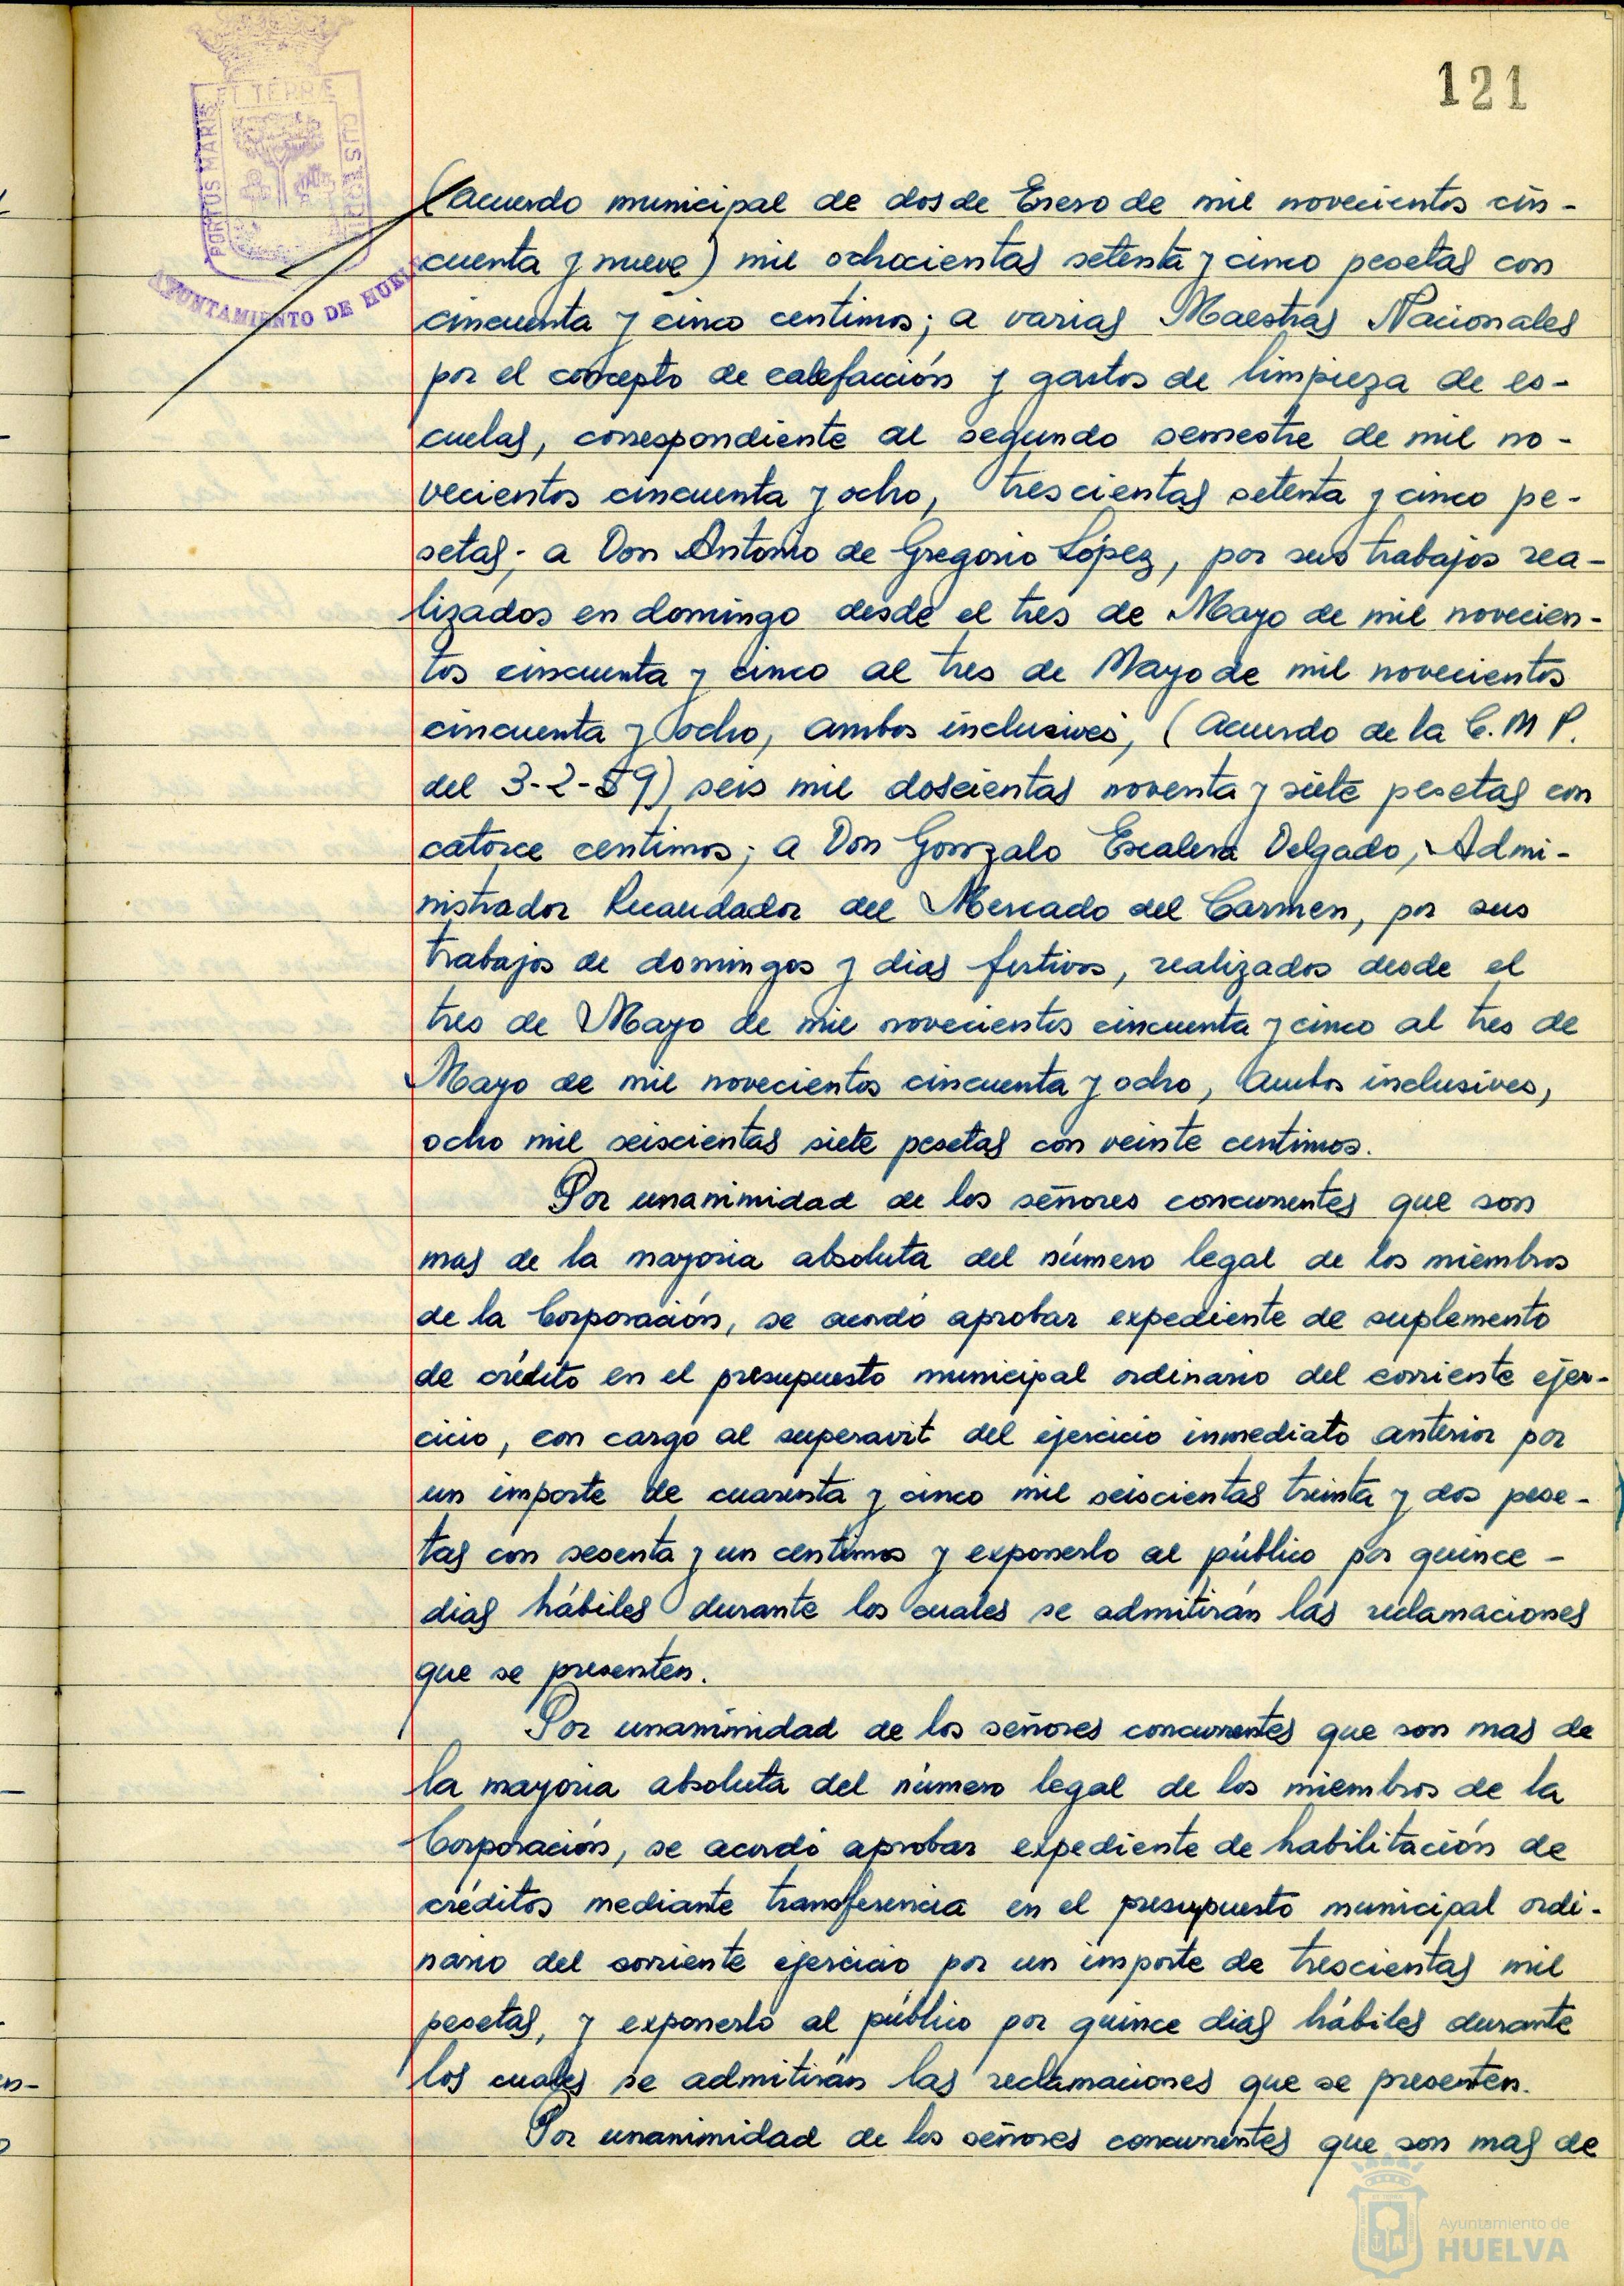 121
PORTUS MARIS ET TERRÆ CUSTODIA
AYUNTAMIENTO DE HUELVA
(acuerdo municipal de dos de Enero de mil novecientos cin-
cuenta y nueve) mil ochocientas setenta y cinco pesetas con
cincuenta y cinco centimos; a varias Maestras Nacionales
por el concepto de calefacción y gastos de limpieza de es-
cuelas, correspondiente al segundo semestre de mil no-
vecientos cincuenta y ocho, trescientas setenta y cinco pe-
setas; a Don Antonio de Gregorio López, por sus trabajos rea-
lizados en domingo desde el tres de Mayo de mil novecien-
tos cincuenta y cinco al tres de Mayo de mil novecientos
cincuenta y ocho, ambos inclusives, (acuerdo de la C. M P.
del 3-2-59) seis mil doscientas noventa y siete pesetas con
catorce centimos; a Don Gonzalo Escalera Delgado, Admi-
nistrador Recaudador del Mercado del Carmen, por sus
trabajos de domingos y dias festivos, realizados desde el
tres de Mayo de mil novecientos cincuenta y cinco al tres de
Mayo de mil novecientos cincuenta y ocho, ambos inclusives,
ocho mil seiscientas siete pesetas con veinte centimos.
Por unanimidad de los señores concurrentes que son
mas de la mayoria absoluta del número legal de los miembros
de la Corporación, se acordó aprobar expediente de suplemento
de crédito en el presupuesto municipal ordinario del corriente ejer-
cicio, con cargo al superavit del ejercicio inmediato anterior por
un importe de cuarenta y cinco mil seiscientas treinta y dos pese-
tas con sesenta y un centimos y exponerlo al público por quince -
dias hábiles durante los cuales se admitirán las reclamaciones
que se presenten.
Por unanimidad de los señores concurrentes que son mas de
la mayoria absoluta del número legal de los miembros de la
Corporación, se acordó aprobar expediente de habilitación de
créditos mediante transferencia en el presupuesto municipal ordi-
nario del corriente ejercicio por un importe de trescientas mil
pesetas, y exponerlo al público por quince dias hábiles durante
los cuales se admitirán las reclamaciones que se presenten.
Por unanimidad de los señores concurrentes que son mas de
Ayuntamiento de
HUELVA